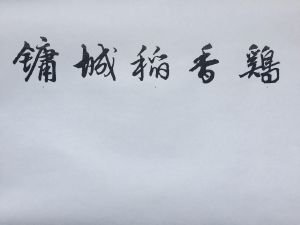 镛城稻香鷄